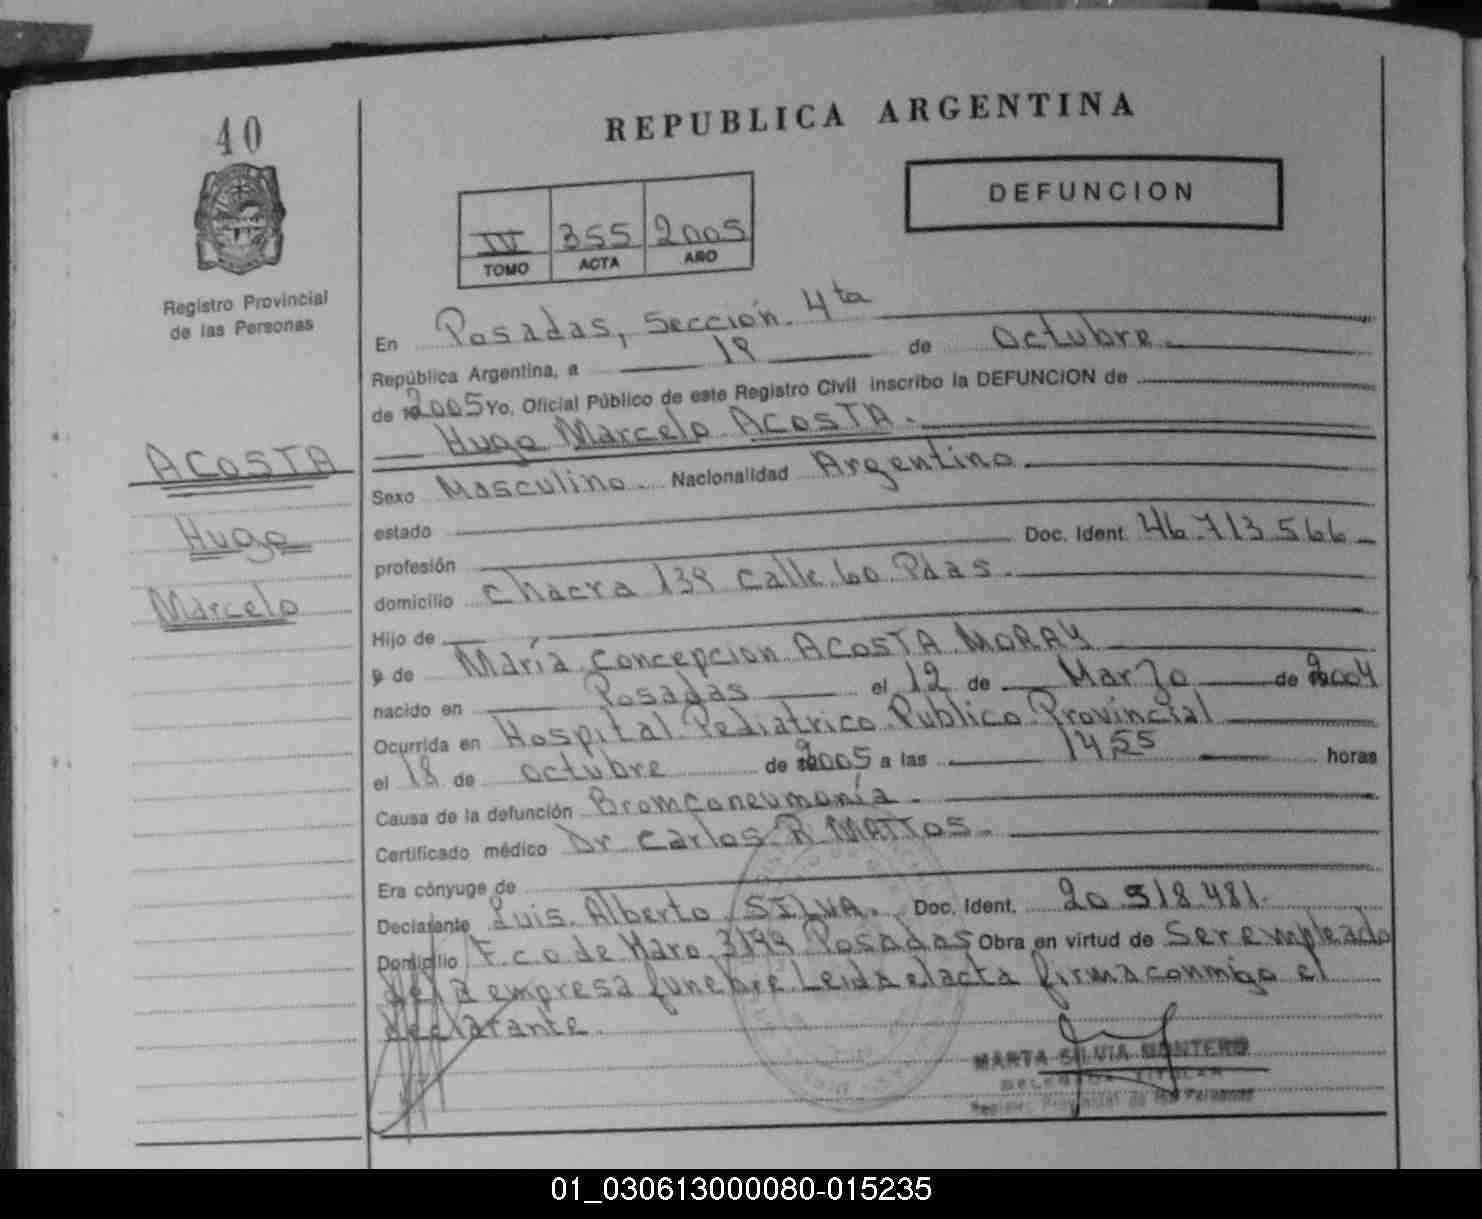 40
REPUBLICA ARGENTINA
DEFUNCION
III 355 2005
TOMO ACTA AÑO
Registro Provincial
de las Personas
ACOSTA
Hugo
Marcelo
En Posadas, Sección 4ta
República Argentina, a 19 de Octubre
de 2005 Yo, Oficial Público de este Registro Civil inscribo la DEFUNCION de
Hugo Marcelo ACOSTA.
Sexo Masculino Nacionalidad Argentino
estado
profesión Doc. Ident. 46.713.566
domicilio Chacra 139 Calle 60 Pdas.
Hijo de
y de María Concepcion ACOSTA MORAY
nacido en Posadas el 12 de Marzo de 2004
Ocurrida en Hospital Pediatrico Publico Provincial
el 18 de octubre de 2005 a las 14,55 horas
Causa de la defunción Bromconeumonía.
Certificado médico Dr Carlos R MATTOS.
Era cónyuge de
Declarante Luis Alberto SILVA. Doc. Ident. 20.518.481.
Domicilio F.co de Haro 3199 Posadas Obra en virtud de Ser empleado
de la empresa funebre Leida el acta firma conmigo el
declarante.
MARTA SILVIA MONTERO
Registro Provincial de las Personas
01_030613000080-015235